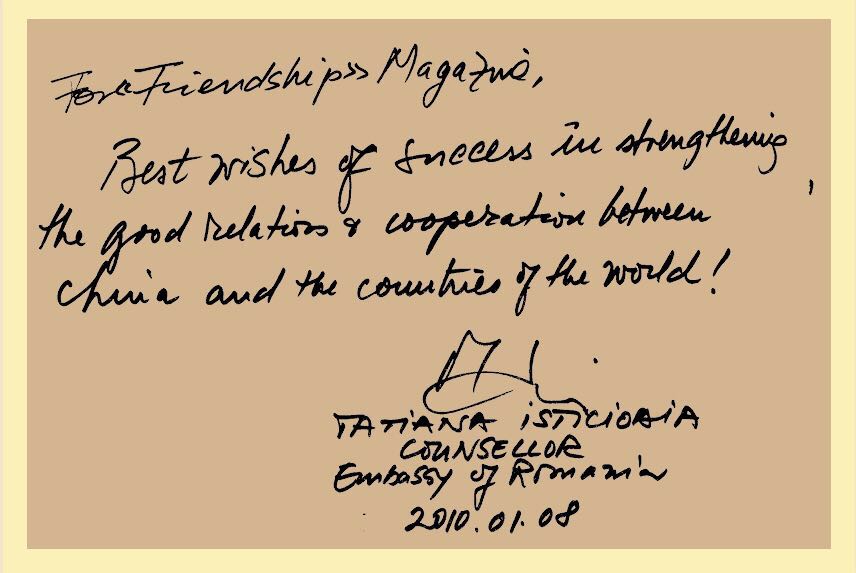 For «Friendship» Magazine,
Best wishes of success in strengthening
the good relations & cooperation between
China and the countries of the world!
TATIANA ISTICIOAIA
COUNSELLOR
Embassy of Romania
2010.01.08